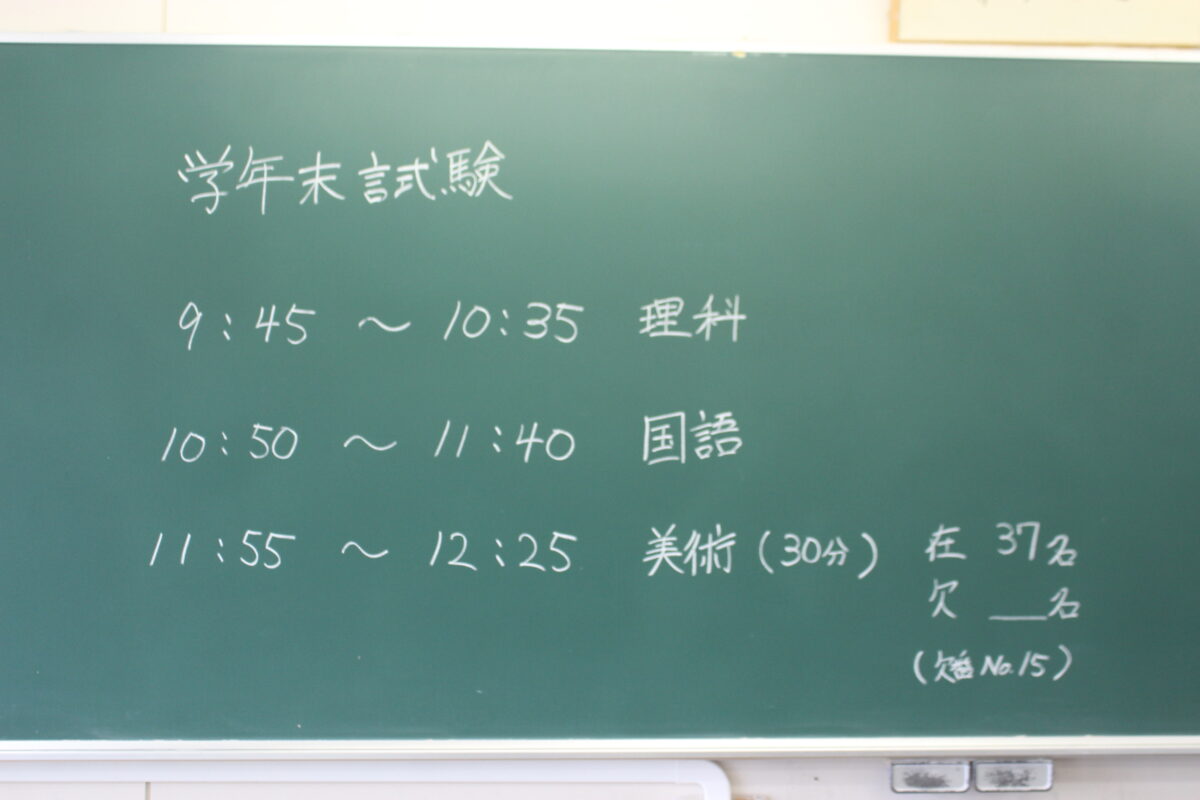 学年末試験
9:45 ～ 10:35 理科
10:50 ～ 11:40 国語
11:55 ～ 12:25 美術 (30分)
在 37名
欠 __名
(欠番 No.15)